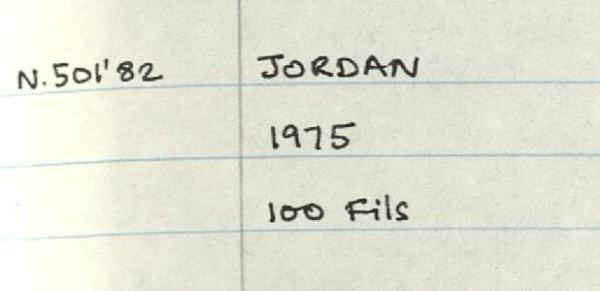 N.501'82 JORDAN
1975
100 Fils